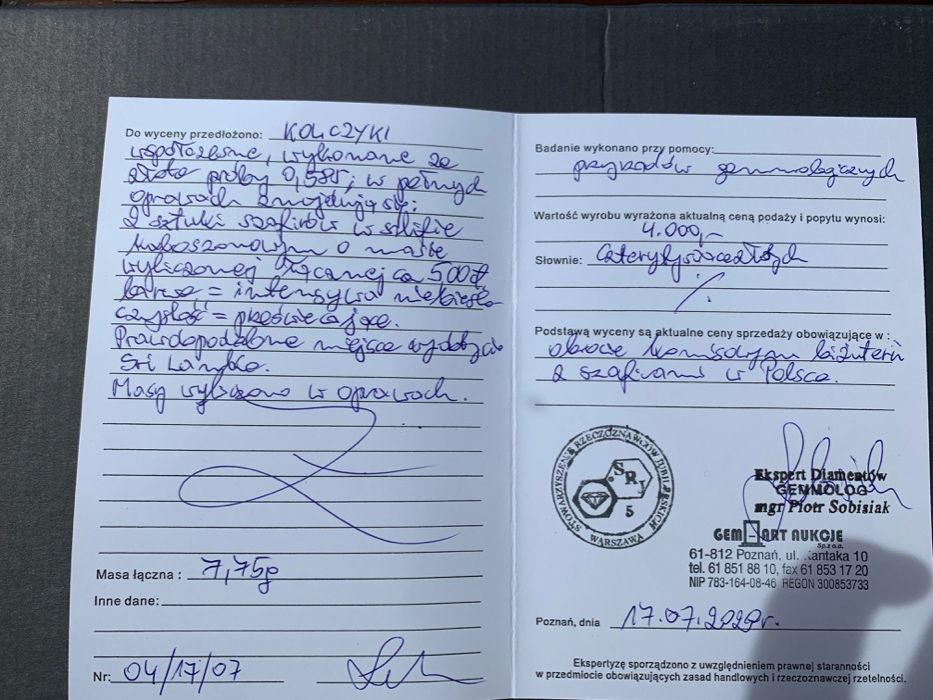 Do wyceny przedłożono: KOLCZYKI
współczesne, wykonane ze
złota próby 0,585; w pełnych
oprawach znajdują się:
2 sztuki szafirów w szlifie
kaboszonowym o masie
wyliczonej łącznej ca 5.00ct
barwa = intensywna niebieska
czystość = przeświecające.
Prawdopodobne miejsce wydobycia
Sri Lanka.
Masy wyliczono w oprawach.
Masa łączna : 7,75g
Inne dane:
Nr: 04/17/07
Badanie wykonano przy pomocy:
przyrządów gemmologicznych
Wartość wyrobu wyrażona aktualną ceną podaży i popytu wynosi:
4.000,-
Słownie: czterytysiącezłotych
Podstawą wyceny są aktualne ceny sprzedaży obowiązujące w :
obrocie komisowym biżuterii
z szafirami w Polsce.
STOWARZYSZENIE RZECZOZNAWCÓW JUBILERSKICH
SRJ
5
WARSZAWA
Ekspert Diamentów
GEMMOLOG
mgr Piotr Sobisiak
GEM-ART AUKCJE
Sp.z o.o.
61-812 Poznań, ul. Kantaka 10
tel. 61 851 88 10, fax 61 853 17 20
NIP 783-164-08-46 REGON 300853733
Poznań, dnia 17.07.2020r.
Ekspertyzę sporządzono z uwzględnieniem prawnej staranności
w przedmiocie obowiązujących zasad handlowych i rzeczoznawczej rzetelności.